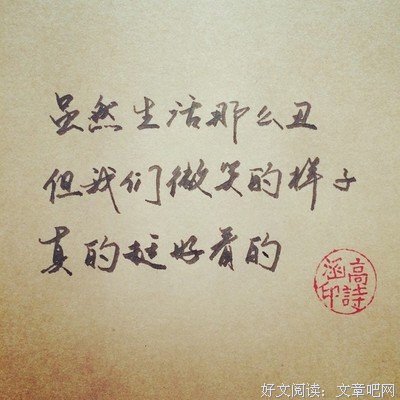 虽然生活那么丑
但我们微笑的样子
真的挺好看的
高詩涵印
好文阅读：文章吧网